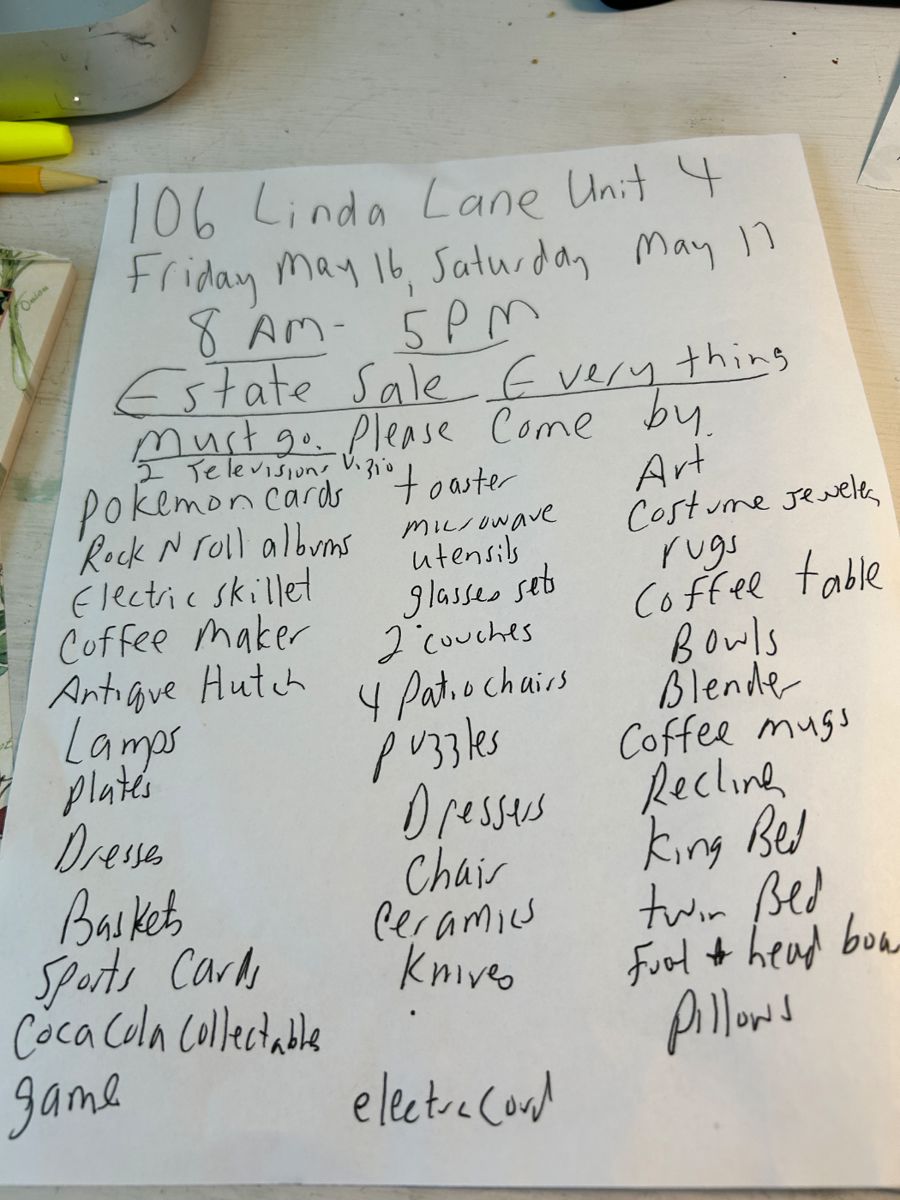 106 Linda Lane Unit 4
Friday May 16, Saturday May 17
8 AM - 5 PM
Estate Sale Everything
Must go. Please Come by.
2 Televisions Vizio
Pokemon cards
Rock N roll albums
Electric skillet
Coffee Maker
Antique Hutch
Lamps
Plates
Dresses
Baskets
Sports Cards
Coca Cola Collectable
game
toaster
microwave
utensils
glasses sets
2 couches
4 Patio chairs
puzzles
Dressers
Chair
Ceramics
Knives
electric Cord
Art
Costume Jewelery
rugs
Coffee table
Bowls
Blender
Coffee mugs
Recliner
King Bed
twin Bed
Foot & head boa
Pillows
Onion